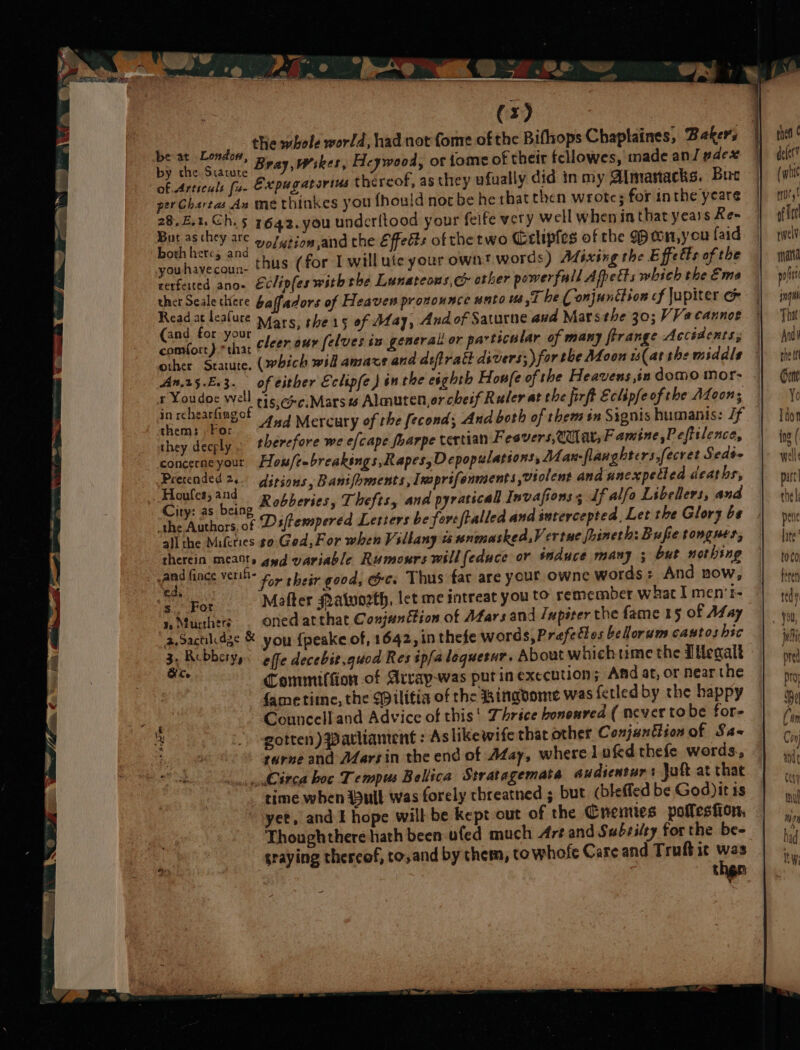 (3)
be at London,
by the Statute
of Articuls ſu-
per Chartas An
28.E.1.Ch.5
But as they are
both heres and
you have coun-
terfeited ano-
ther Seale there
Read at leaſure
(and for your
comfort) that
other Statute.
An.25.E.3.
Youdoe well
in rehearſing of
them: For
they deeply
concerne your
Pretended 2.
Houſes, and
City: as being
the Authors of
all the Miſeries
therein meant,
and ſince verifi-
ed.
For
Murthers
2. Sacriledge &
3. Robbery,
&c.
the whole world, had not ſome of the Biſhops Chaplaines, Baker,
Bray, Wikes, Heywood, or ſome of their fellowes, made an Index
Expugatorius thereof, as they uſually did in my Almanacks. But
me thinkes you ſhould not be he that then wrote; for in the yeare
1642. you underſtood your ſelfe very well when in that years Re-
volution, and the Effects of the two Eclipſes of the Moon, you ſaid
thus (for I will uſe your own words) Mixing the Effects of the
Eclipſes with the Lunateons, & other powerfull Aſpects which the Em-
baſſadors of Heaven pronounce unto us, The Conjunction of Jupiter &
Mars, the 15 of May, And of Saturne and Mars the 30; VVe cannot
cleer our ſelves in generall or particular of many ſtrange Accidents;
(which will amaze and diſtract divers;) for the Moon is (at the middle
of either Eclipſe) in the eighth Houſe of the Heavens, in domo mor-
tis, &c. Mars is Almuten, or cheif Ruler at the firſt Eclipſe of the Moon;
And Mercury of the ſecond; And both of them in Signis humanis: If
therefore we eſcape ſharpe tertian Feavers, War, Famine, Peſtilence,
Houſe-breakings, Rapes, Depopulations, Man-ſlaughters, ſecret Sede-
ditions, Baniſhments, Impriſonments, violent and unexpected deaths,
Robberies, Thefts, and pyraticall Invaſions; If alſo Libellers, and
Diſtempered Letters be foreſtalled and intercepted, Let the Glory be
to God, For when Villany is unmasked, Vertue ſhineth: Buſie tongues,
and variable Rumours will ſeduce or induce many; but nothing
for their good, &c. Thus far are your owne words: And now,
Maſter Patworth, let me intreat you to remember what I menti-
oned at that Conjunction of Mars and Jupiter the ſame 15 of May
you ſpeake of, 1642, in theſe words, Prafectos bellorum cautos hic
eſſe decebit, quod Res ipſa loquetur. About which time the Illegall
Commiſſion of Array was put in execution; And at, or near the
ſame time, the Militia of the Kingdome was ſetled by the happy
Councell and Advice of this Thrice honoured (never to be for-
gotten) Parliament: As likewiſe that other Conjunction of Sa-
turne and Mars in the end of May, where I uſed theſe words,
Circa hoc Tempus Bellica Stratagemata audientur: Juſt at that
time when Hull was ſorely threatned; but (bleſſed be God) it is
yet, and I hope will be kept out of the Enemies poſſeſſion,
Though there hath been uſed much Art and Subtilty for the be-
traying thereof, to, and by them, to whoſe Care and Truſt it was
then